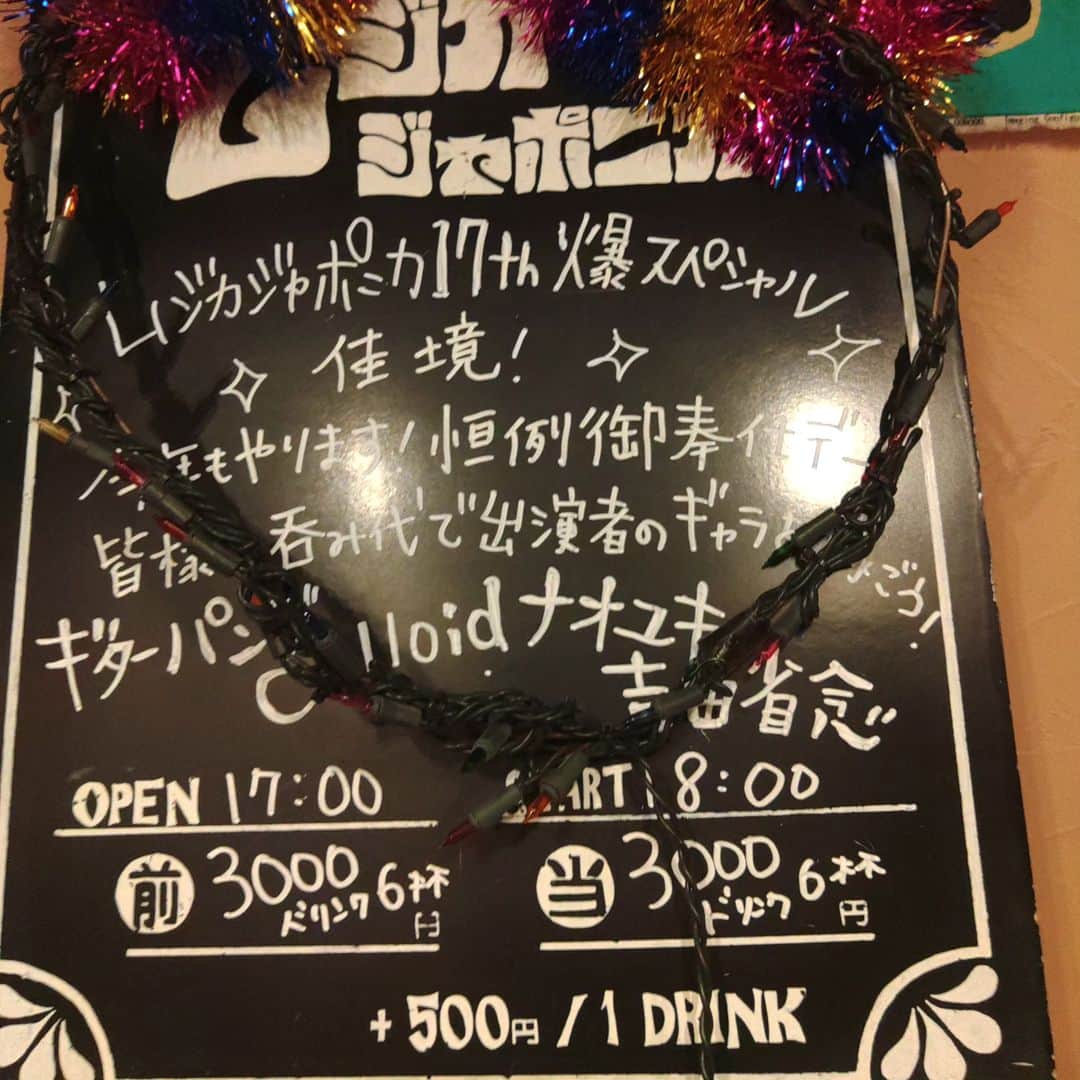 ジカ
ジャポニカ
ムジカジャポニカ17th 爆スペシャル
佳境!
今年もやります!恒例御奉仕デー
皆様 呑み代で出演者のギャラを
ギターパンダ lloid ナオユキ
吉田省念
OPEN 17:00 START 18:00
前 3000円 ドリンク6杯 当 3000円 ドリンク6杯
+500円/1 DRINK